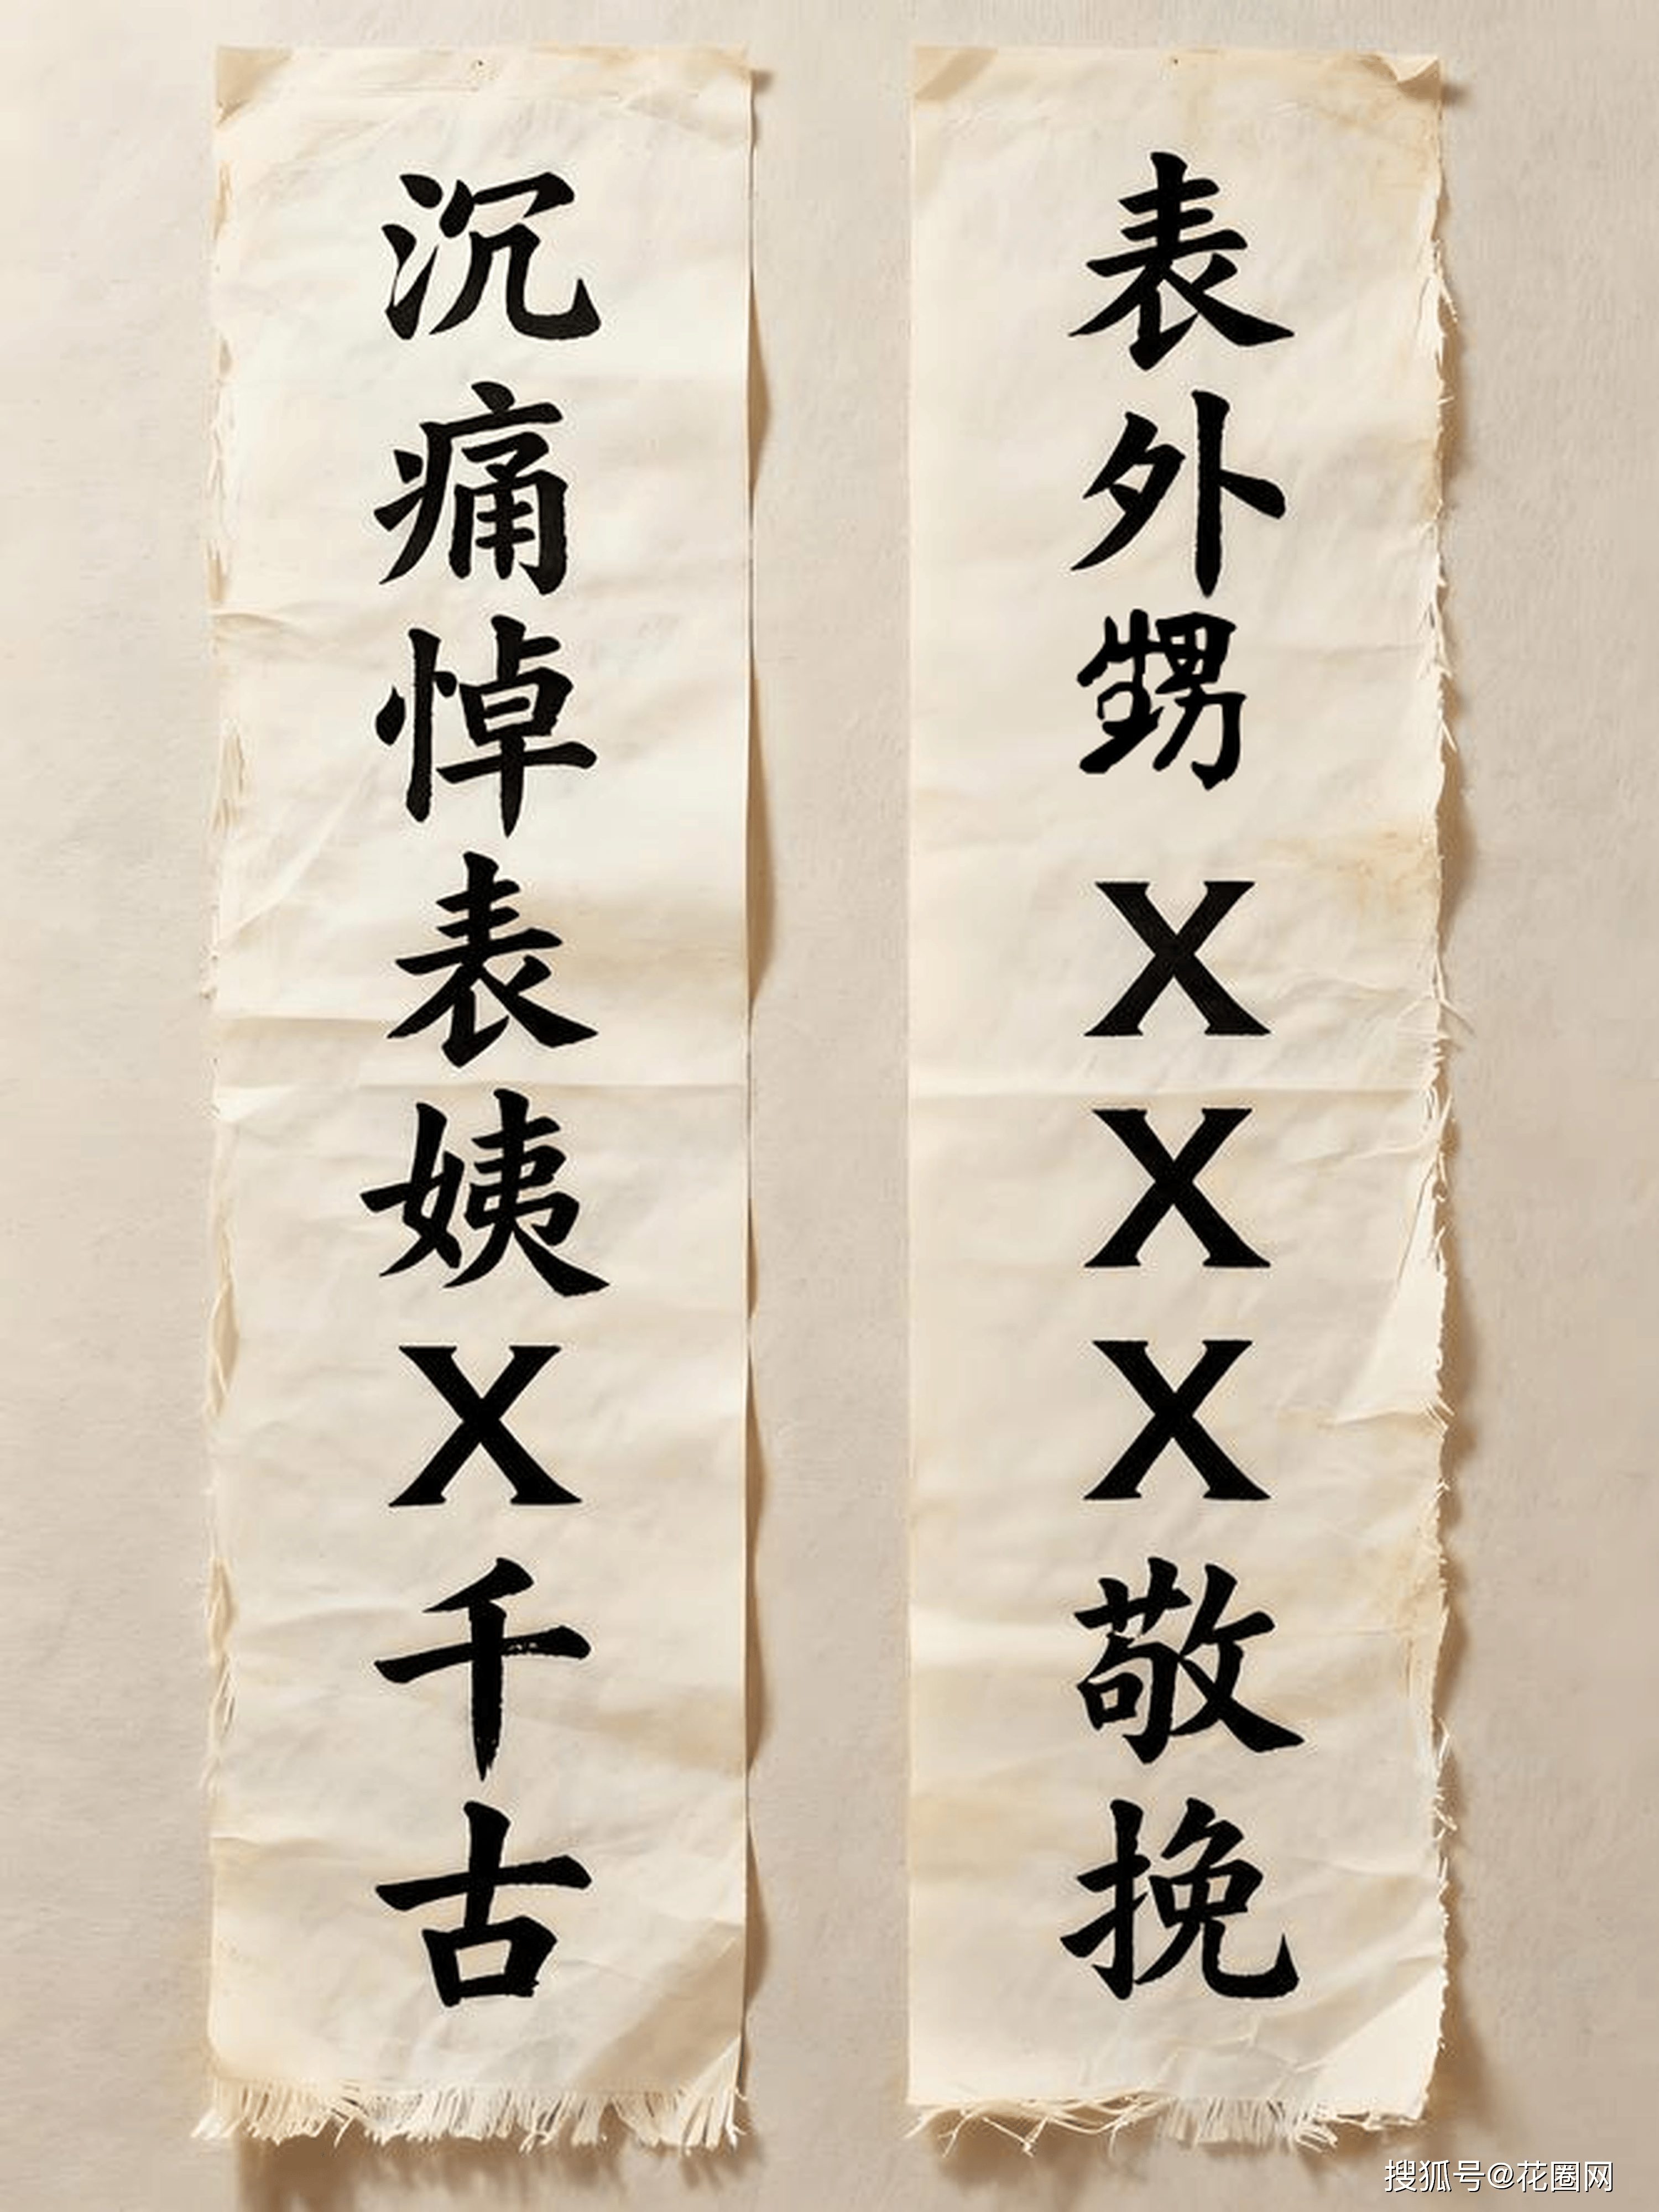 沉痛悼表姨X千古
表外甥XXX敬挽
搜狐号@花圈网